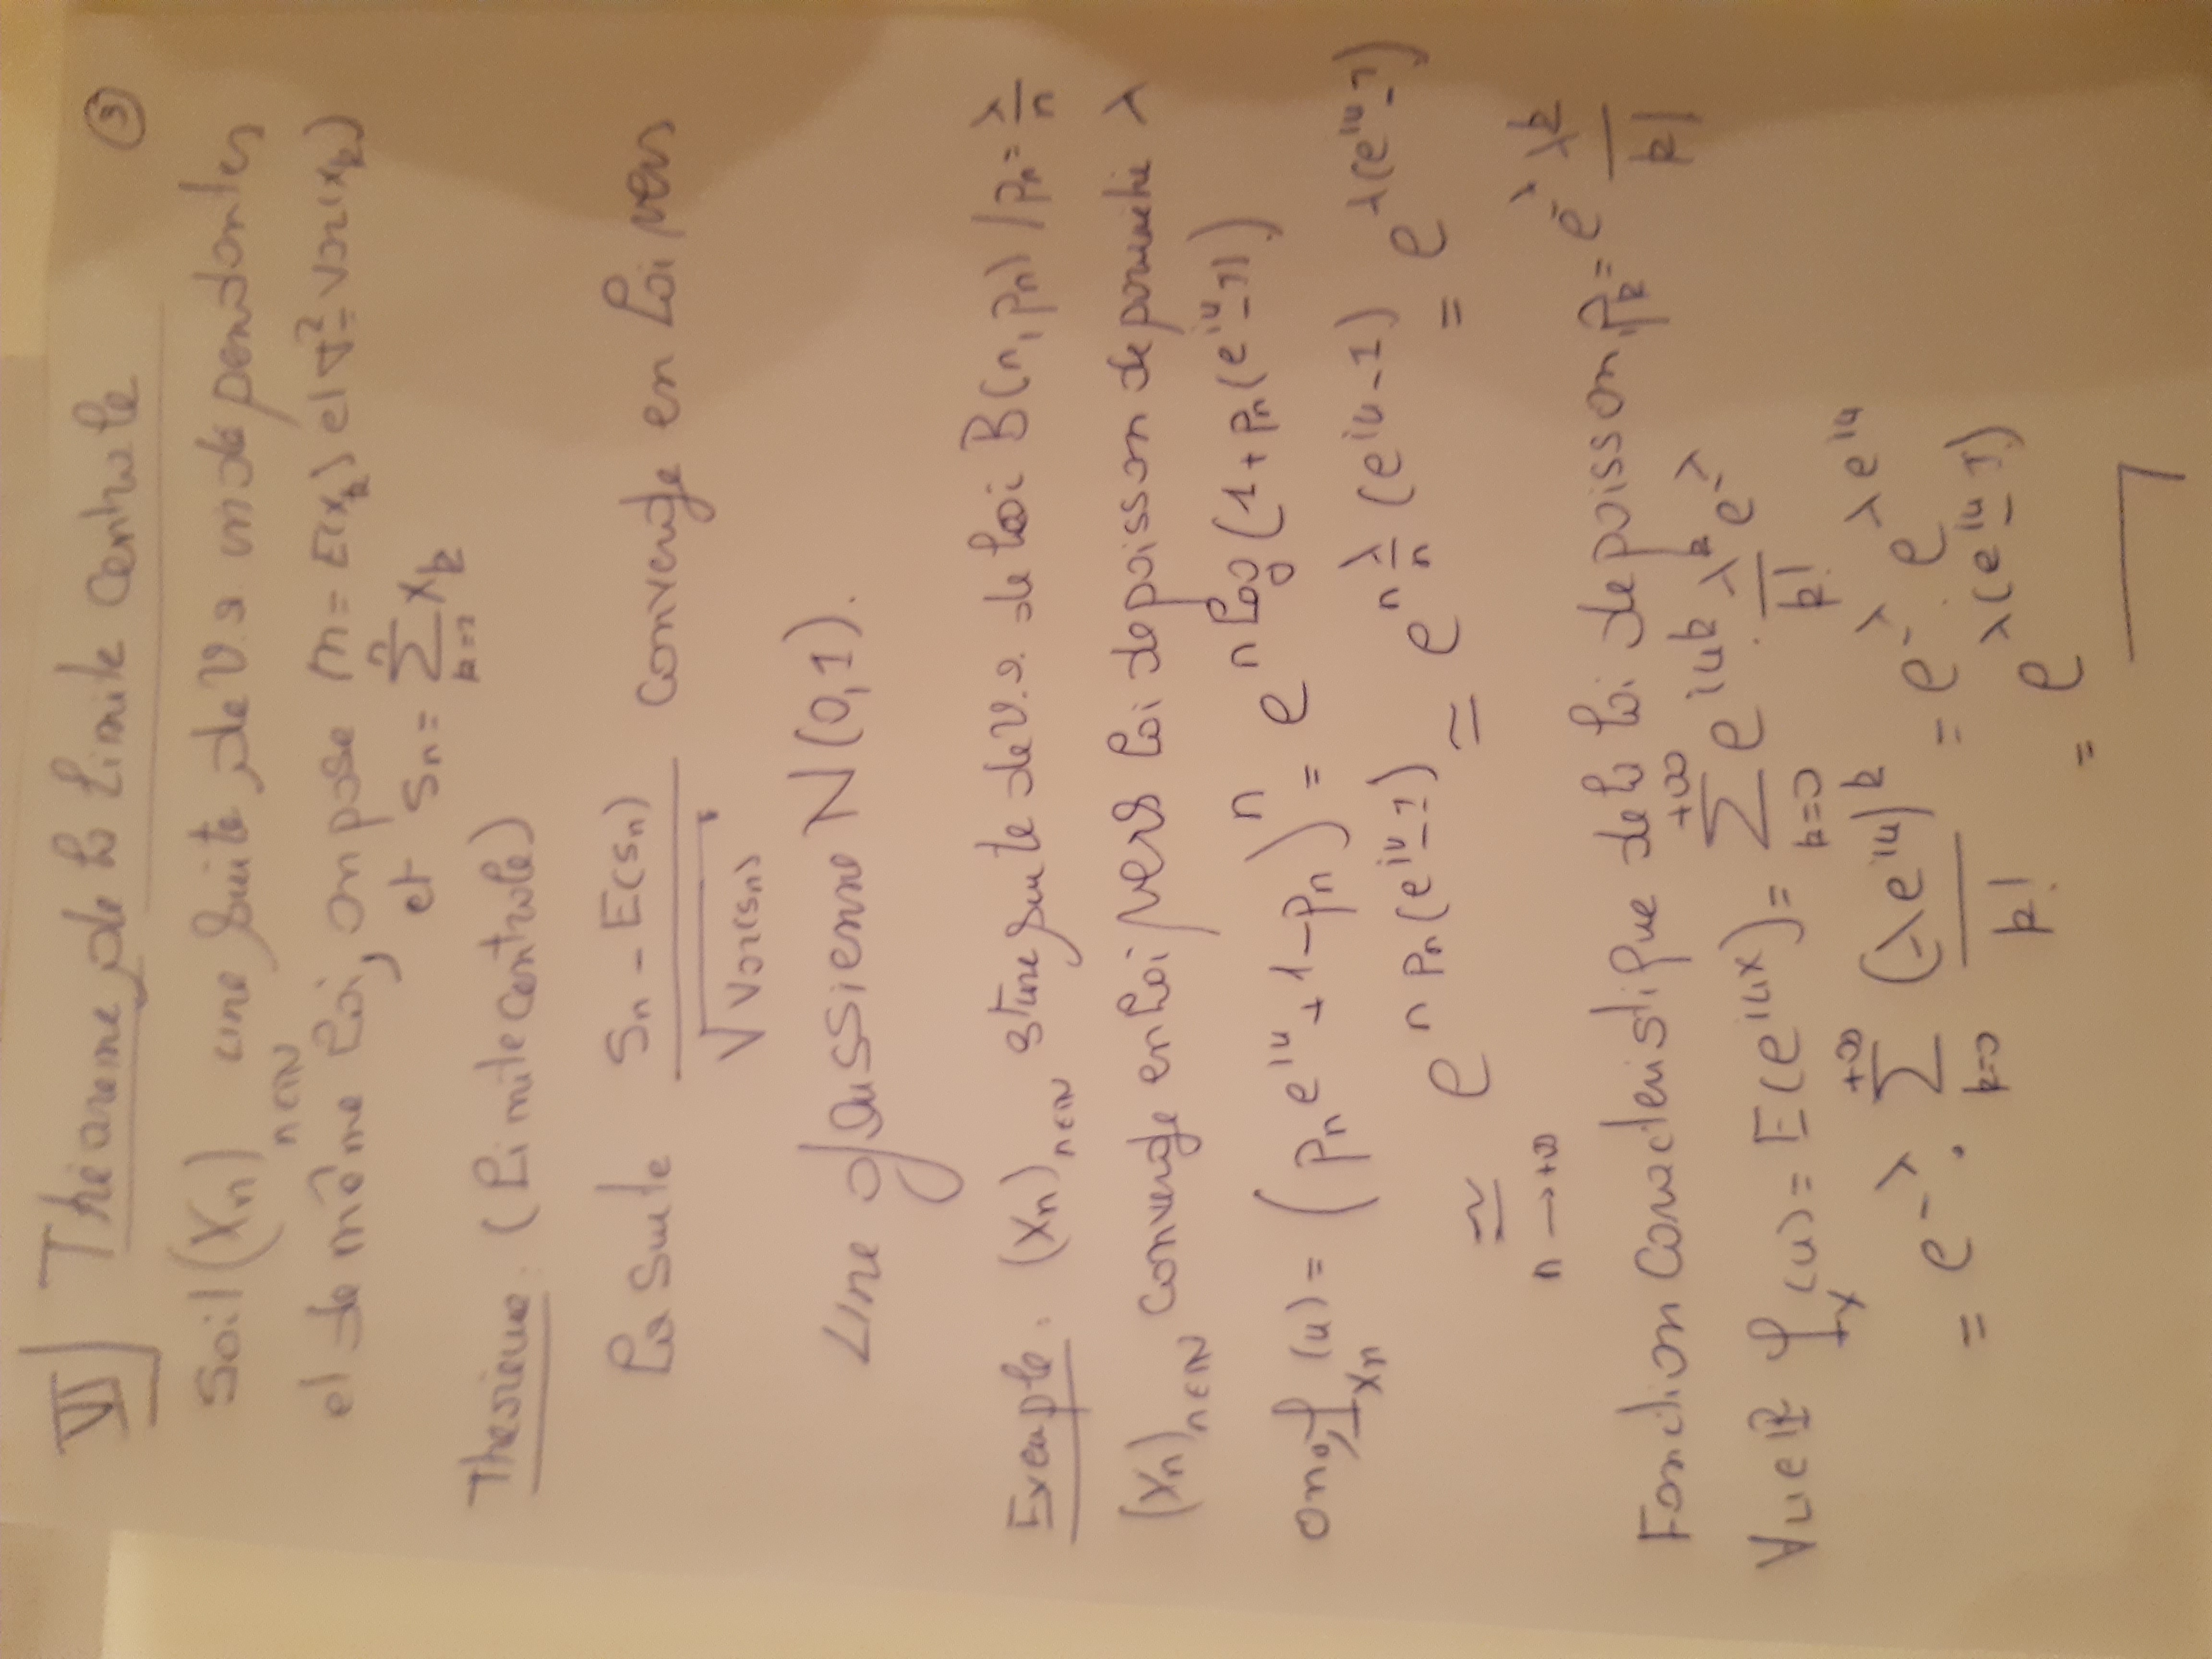 VI] Théoreme de la limite centrale ③
Soit (Xn)n∈IN une suite de v.a indépendantes
et de même loi, on pose m = E(Xk) et σ² = Var(Xk)
et Sn = Σ_{k=1}^{n} Xk
Théorème : (Limite centrale)
La suite (Sn - E(Sn)) / √Var(Sn) converge en loi vers
une gaussienne N(0,1).
Exemple : (Xn)n∈IN suite de v.a. de loi B(n, pn) / pn = λ/n
(Xn)n∈IN converge en loi vers loi de poisson de paramètre λ
on a, φ_Xn(u) = (pn e^{iu} + 1 - pn)^n = e^{n log(1 + pn(e^{iu} - 1))}
≃_{n → +∞} e^{n pn(e^{iu} - 1)} ≃ e^{n λ/n (e^{iu} - 1)} = e^{λ(e^{iu} - 1)}
Fonction caractéristique de la loi de poisson, pk = e^{-λ} λ^k / k!
∀u∈IR φ_X(u) = E(e^{iuX}) = Σ_{k=0}^{+∞} e^{iuk} . λ^k / k! e^{-λ}
= e^{-λ} . Σ_{k=0}^{+∞} (λe^{iu})^k / k! = e^{-λ} . e^{λe^{iu}}
= e^{λ(e^{iu} - 1)}